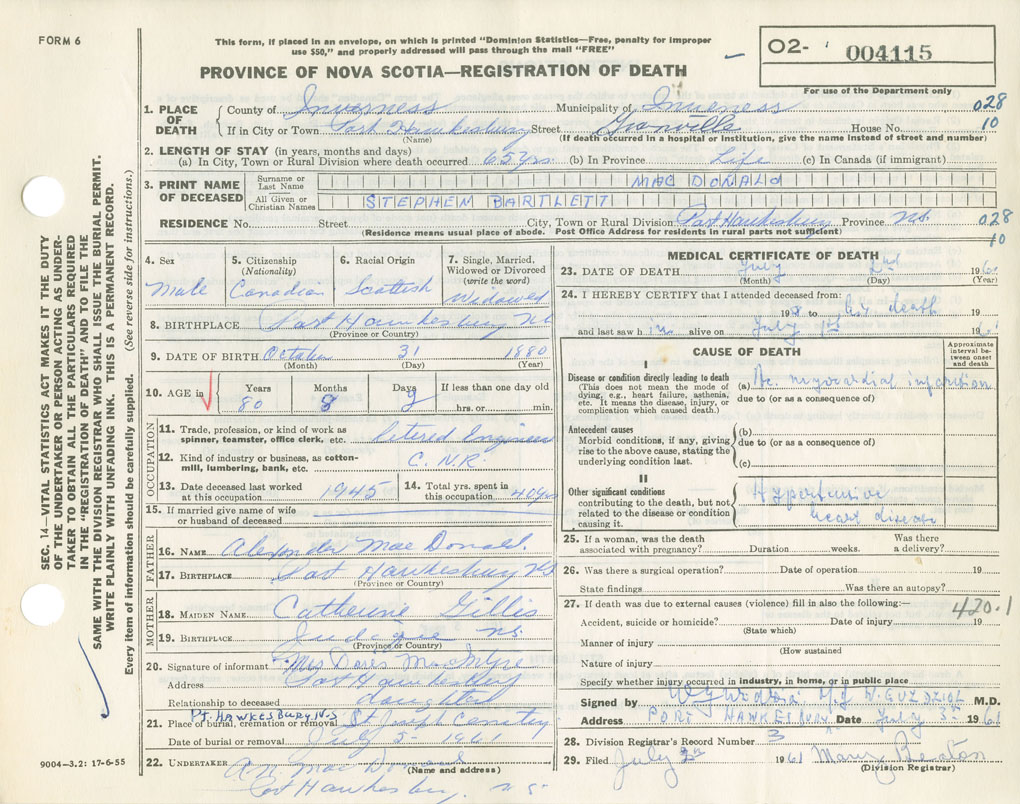 FORM 6
This form, if placed in an envelope, on which is printed "Dominion Statistics—Free, penalty for improper
use $50," and properly addressed will pass through the mail "FREE"
O2- 004115
For use of the Department only
PROVINCE OF NOVA SCOTIA—REGISTRATION OF DEATH
SEC. 14—VITAL STATISTICS ACT MAKES IT THE DUTY
OF THE UNDERTAKER OR PERSON ACTING AS UNDER-
TAKER TO OBTAIN ALL THE PARTICULARS REQUIRED
IN THE "REGISTRATION OF DEATH" AND TO FILE THE
SAME WITH THE DIVISION REGISTRAR WHO SHALL ISSUE THE BURIAL PERMIT.
WRITE PLAINLY WITH UNFADING INK. THIS IS A PERMANENT RECORD.
Every item of information should be carefully supplied. (See reverse side for instructions.)
1. PLACE OF DEATH County of Inverness Municipality of Inverness 028
If in City or Town Port Hawkesbury Street Granville House No. 10
(Name) (If death occurred in a hospital or institution, give the name instead of street and number)
2. LENGTH OF STAY (in years, months and days)
(a) In City, Town or Rural Division where death occurred 65 yrs. (b) In Province Life (c) In Canada (if immigrant)
3. PRINT NAME OF DECEASED
Surname or Last Name MAC DONALD
All Given or Christian Names STEPHEN BARTLETT
RESIDENCE No. Street City, Town or Rural Division Port Hawkesbury Province N.S. 028
(Residence means usual place of abode. Post Office Address for residents in rural parts not sufficient) 10
4. Sex Male
5. Citizenship (Nationality) Canadian
6. Racial Origin Scottish
7. Single, Married, Widowed or Divorced (write the word) Widowed
8. BIRTHPLACE Port Hawkesbury NS
(Province or Country)
9. DATE OF BIRTH October 31 1880
(Month) (Day) (Year)
10. AGE in Years Months Days If less than one day old
80 8 hrs. or min.
OCCUPATION
11. Trade, profession, or kind of work as spinner, teamster, office clerk, etc. Retired Engineer
12. Kind of industry or business, as cotton-mill, lumbering, bank, etc. C.N.R.
13. Date deceased last worked at this occupation 1945
14. Total yrs. spent in this occupation 40 yrs
15. If married give name of wife or husband of deceased
FATHER
16. NAME Alexander Mac Donald.
17. BIRTHPLACE Port Hawkesbury NS
(Province or Country)
MOTHER
18. MAIDEN NAME Catherine Gillis
19. BIRTHPLACE Judique NS.
(Province or Country)
20. Signature of informant Mrs MacIntyre
Address Port Hawkesbury
Relationship to deceased daughter
Pt. HAWKESBURY N.S
21. Place of burial, cremation or removal St Joseph
Date of burial or removal July 5- 1961
22. UNDERTAKER Mac Donald
(Name and address)
Port Hawkesbury, N.S.
9004—3.2: 17-6-55
MEDICAL CERTIFICATE OF DEATH
23. DATE OF DEATH July 2nd 1961
(Month) (Day) (Year)
24. I HEREBY CERTIFY that I attended deceased from:
19 to death
and last saw him alive on July 1st 1961
CAUSE OF DEATH
Approximate interval between onset and death
I
Disease or condition directly leading to death
(This does not mean the mode of dying, e.g., heart failure, asthenia, etc. It means the disease, injury, or complication which caused death.)
(a) Ac. myocardial infarction
due to (or as a consequence of)
Antecedent causes
Morbid conditions, if any, giving rise to the above cause, stating the underlying condition last.
(b)
due to (or as a consequence of)
(c)
II
Other significant conditions
contributing to the death, but not related to the disease or condition causing it.
Hypertensive
heart disease
25. If a woman, was the death associated with pregnancy? Duration weeks. Was there a delivery?
26. Was there a surgical operation? Date of operation 19
State findings Was there an autopsy?
27. If death was due to external causes (violence) fill in also the following:— 420.1
Accident, suicide or homicide? Date of injury 19
(State which)
Manner of injury
(How sustained
Nature of injury
Specify whether injury occurred in industry, in home, or in public place
Signed by M.D.
Address PORT HAWKESBURY Date July 5- 1961
28. Division Registrar's Record Number 3
29. Filed July 1961 Mary
(Division Registrar)